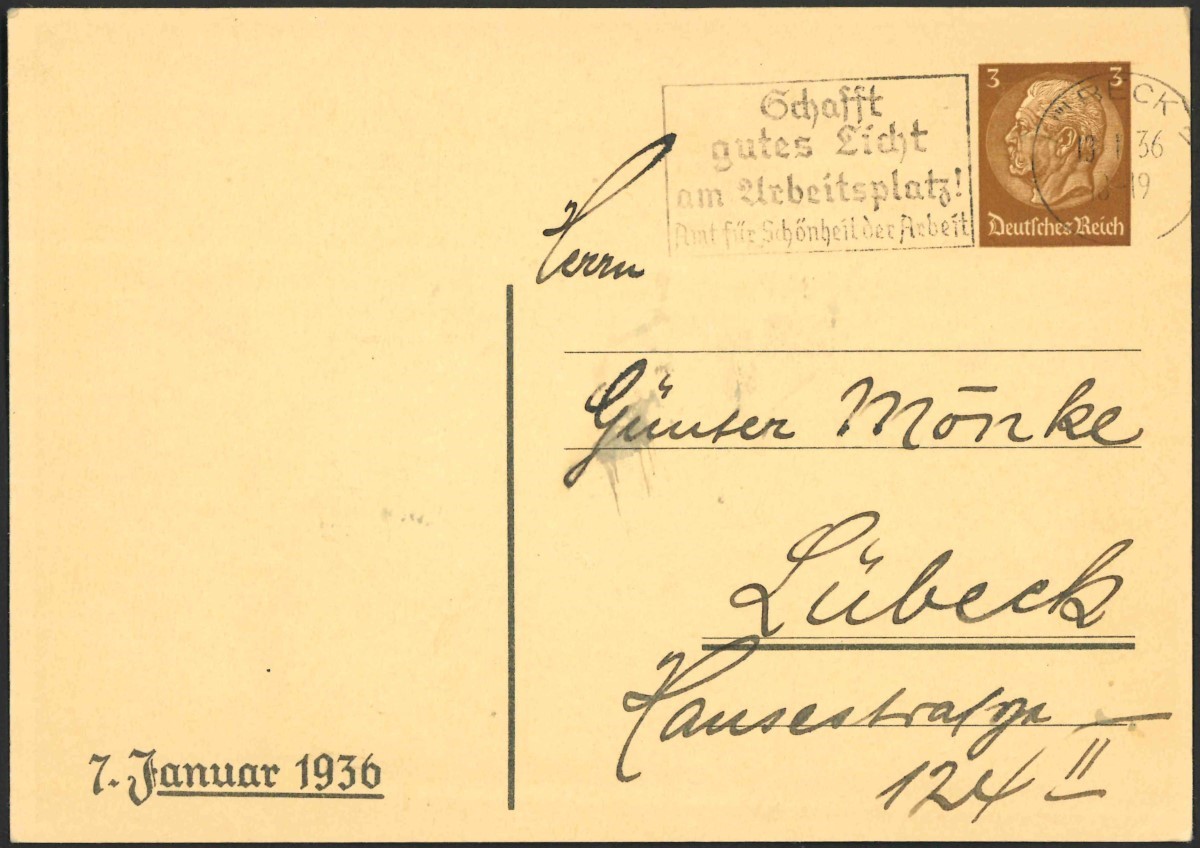 Schafft
gutes Licht
am Arbeitsplatz!
Amt für Schönheit der Arbeit
3 3
Deutsches Reich
LÜBECK
13.1.36
18-19
Herrn
Günter Mönke
Lübeck
Hansestraße
124 II
7. Januar 1936